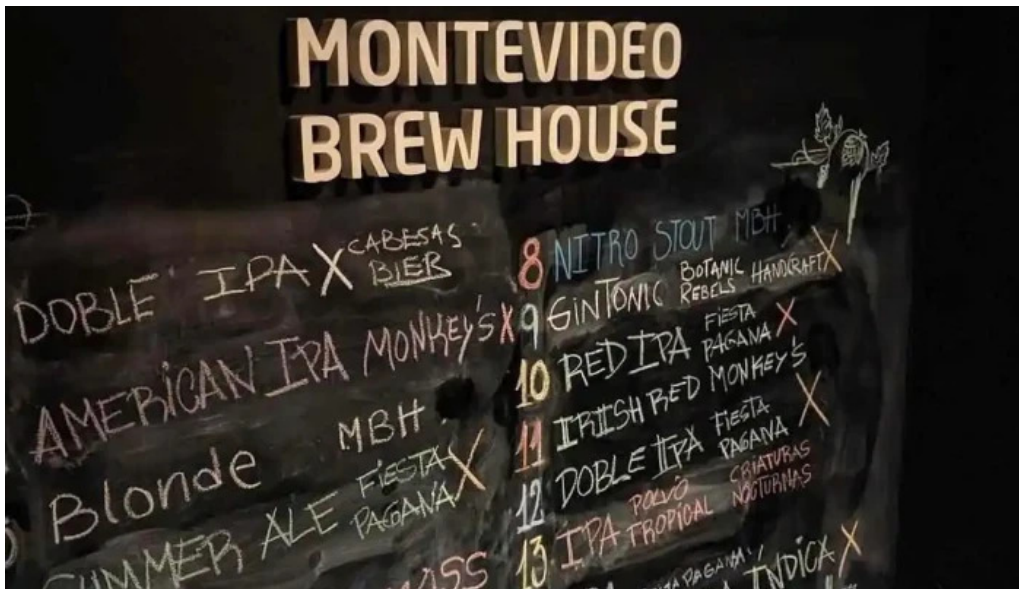 MONTEVIDEO
BREW HOUSE
DOBLE IPA X CABESAS BIER
AMERICAN IPA MONKEY'S X
Blonde MBH
SUMMER ALE FIESTA PAGANA X
8 NITRO STOUT MBH
9 GINTONIC BOTANIC REBELS HANDCRAFT X
10 RED IPA FIESTA PAGANA X
11 IRISH RED MONKEY'S
12 DOBLE IPA FIESTA PAGANA X
13 IPA POLVO TROPICAL CRIATURAS NOCTURNAS
INDICA X